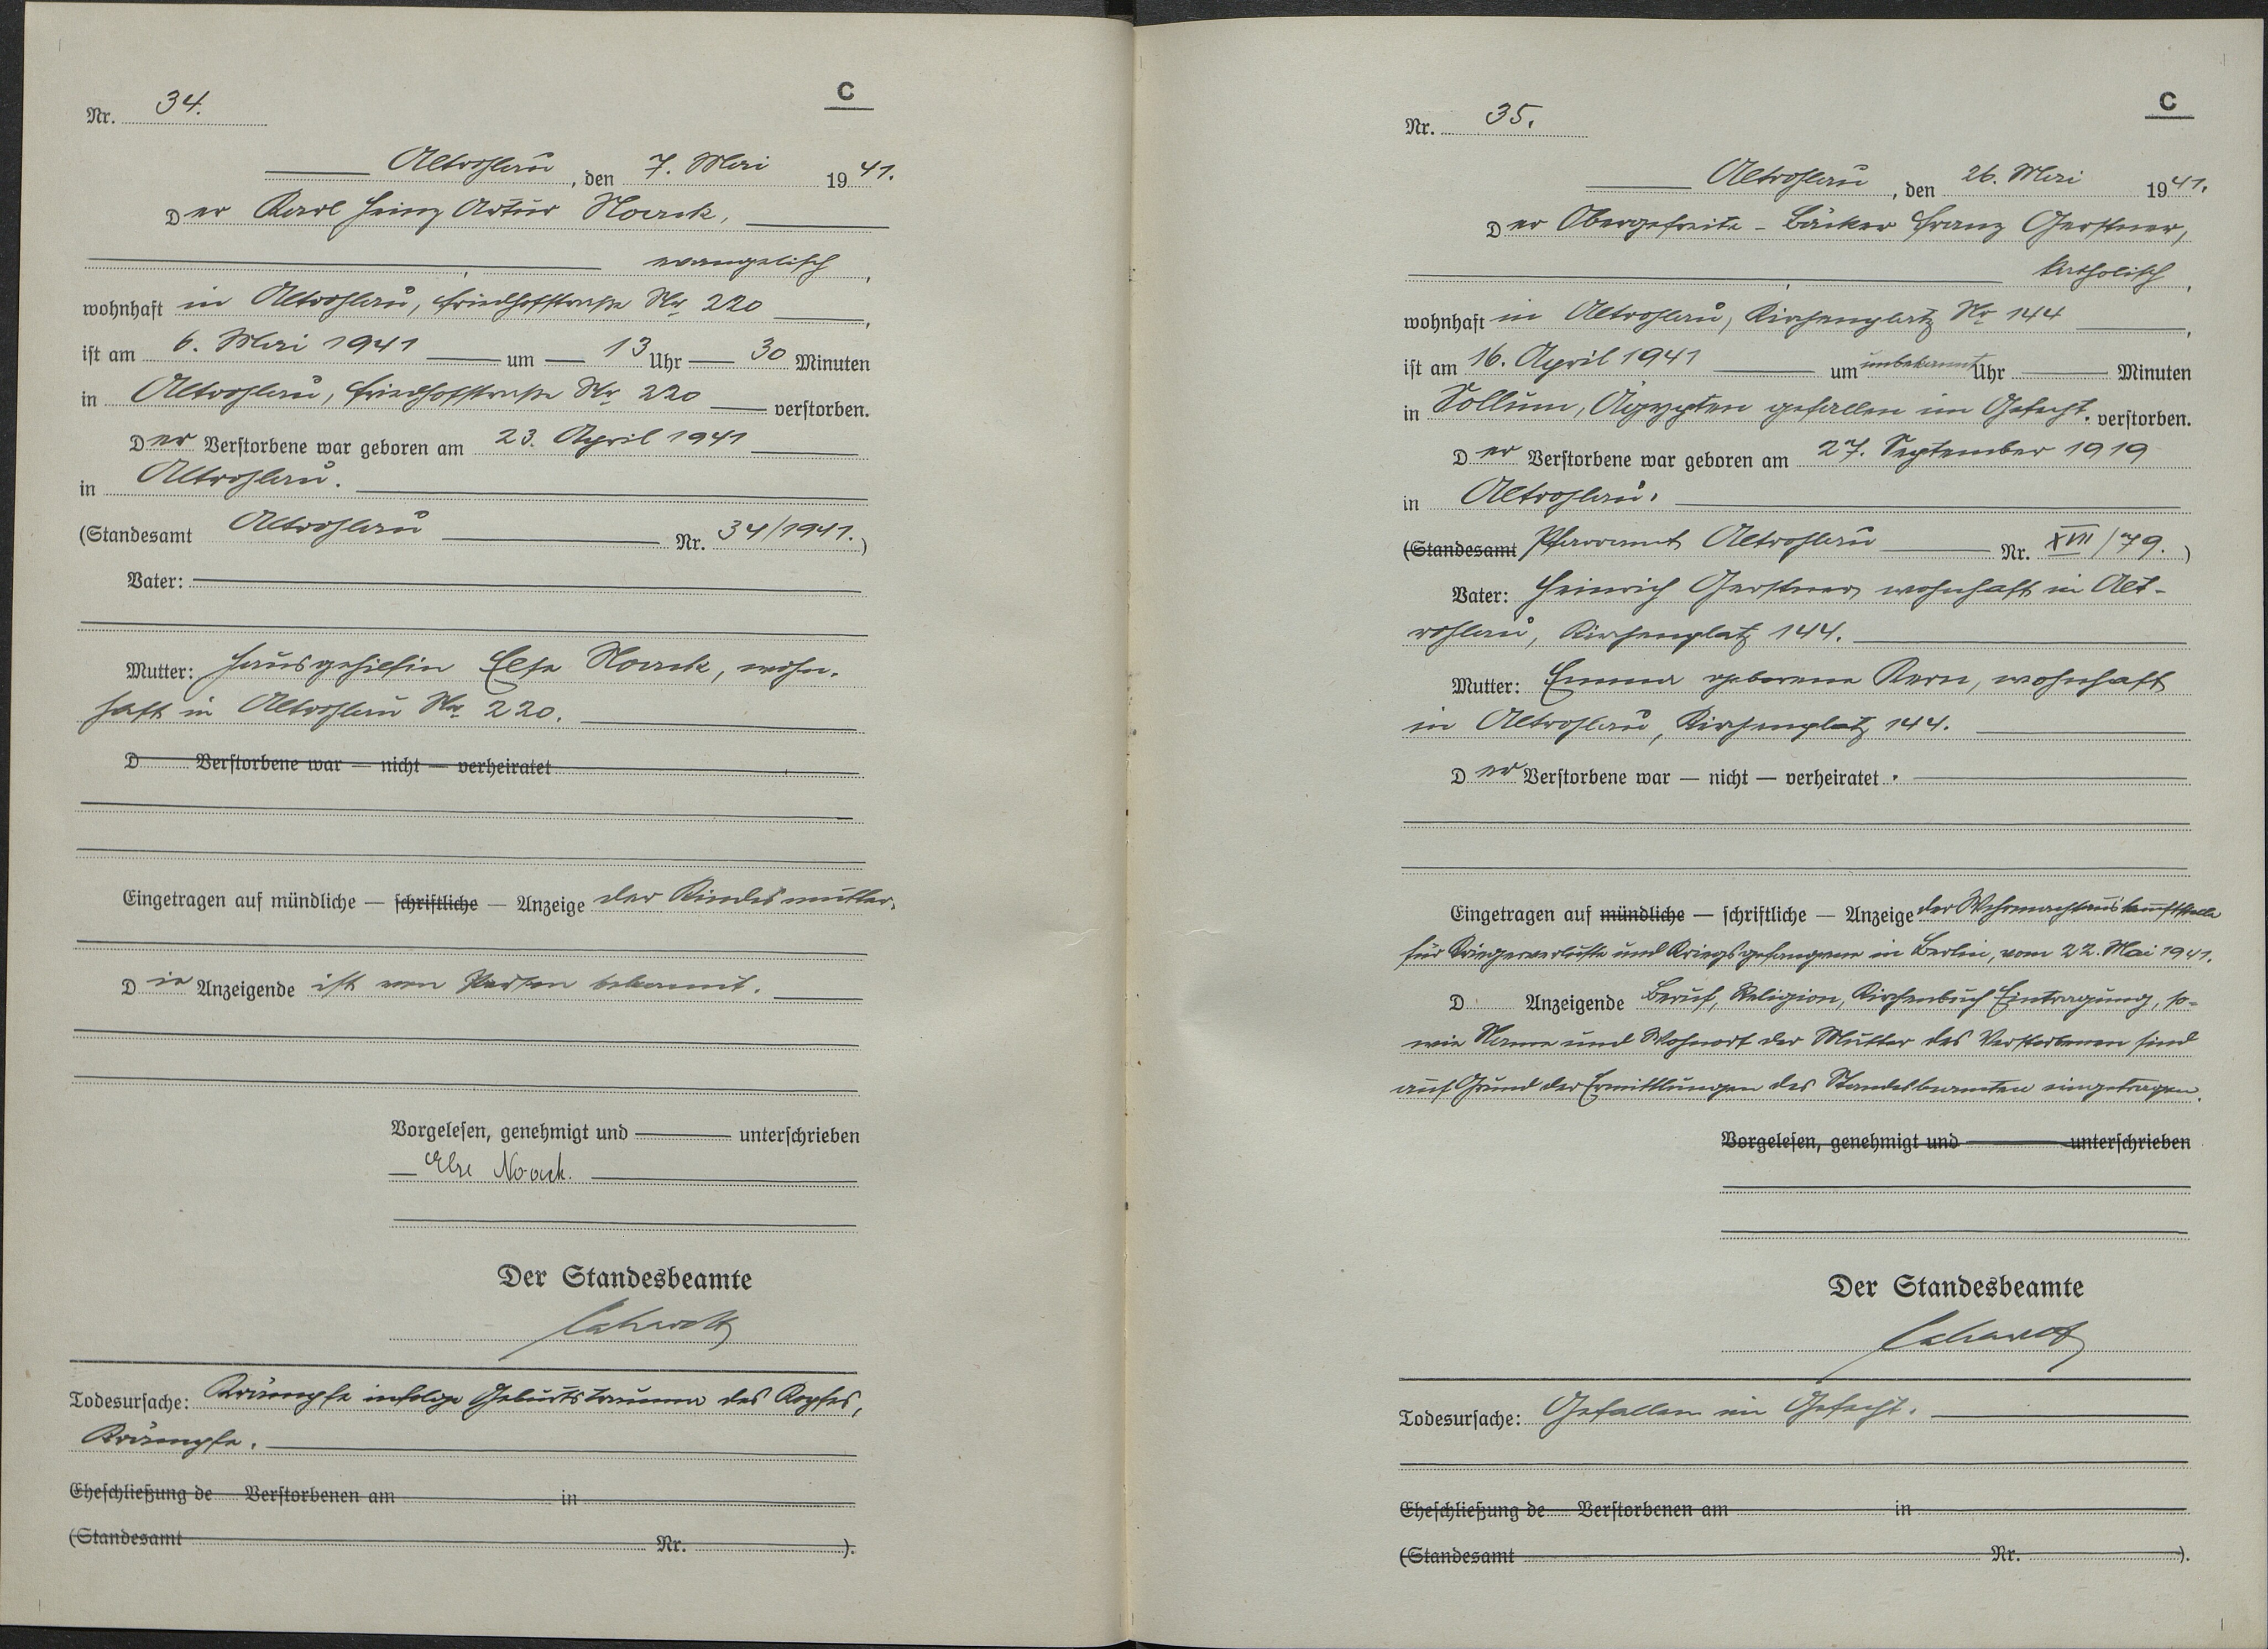 C
Nr. 34.
Altrohlau, den 7. Mai 1941.
Der Karl Heinz Artur Noack,
evangelisch,
wohnhaft in Altrohlau, Friedhofstraße Nr. 220,
ist am 6. Mai 1941 um 13 Uhr 30 Minuten
in Altrohlau, Friedhofstraße Nr. 220 verstorben.
Der Verstorbene war geboren am 23. April 1941
in Altrohlau.
(Standesamt Altrohlau Nr. 34/1941.)
Vater:
Mutter: Hausgehilfin Else Noack, wohn-
haft in Altrohlau Nr. 220.
D Verstorbene war — nicht — verheiratet
Eingetragen auf mündliche — schriftliche — Anzeige der Kindesmutter.
Die Anzeigende ist von Person bekannt.
Vorgelesen, genehmigt und unterschrieben
Else Noack.
Der Standesbeamte
Todesursache: Krämpfe infolge Geburtstrauma des Kopfes,
Krämpfe.
Eheschließung de Verstorbenen am in
(Standesamt Nr. ).
C
Nr. 35.
Altrohlau, den 26. Mai 1941.
Der Obergefreite - Bäcker Franz Gerstner,
katholisch,
wohnhaft in Altrohlau, Kirchenplatz Nr. 144,
ist am 16. April 1941 um unbekannt Uhr Minuten
in Sollum, Ägypten gefallen im Gefecht. verstorben.
Der Verstorbene war geboren am 27. September 1919
in Altrohlau.
(Standesamt Pfarramt Altrohlau Nr. XVII/79.)
Vater: Heinrich Gerstner, wohnhaft in Alt-
rohlau, Kirchenplatz 144.
Mutter: Emma geborene Kern, wohnhaft
in Altrohlau, Kirchenplatz 144.
Der Verstorbene war — nicht — verheiratet.
Eingetragen auf mündliche — schriftliche — Anzeige der Wehrmachtauskunftstelle
für Kriegerverluste und Kriegsgefangene in Berlin, vom 22. Mai 1941.
D Anzeigende Beruf, Religion, Kirchenbuch Eintragung, so-
wie Name und Wohnort der Mutter des Verstorbenen sind
auf Grund der Ermittlungen des Standesbeamten eingetragen.
Vorgelesen, genehmigt und unterschrieben
Der Standesbeamte
Todesursache: Gefallen im Gefecht.
Eheschließung de Verstorbenen am in
(Standesamt Nr. ).